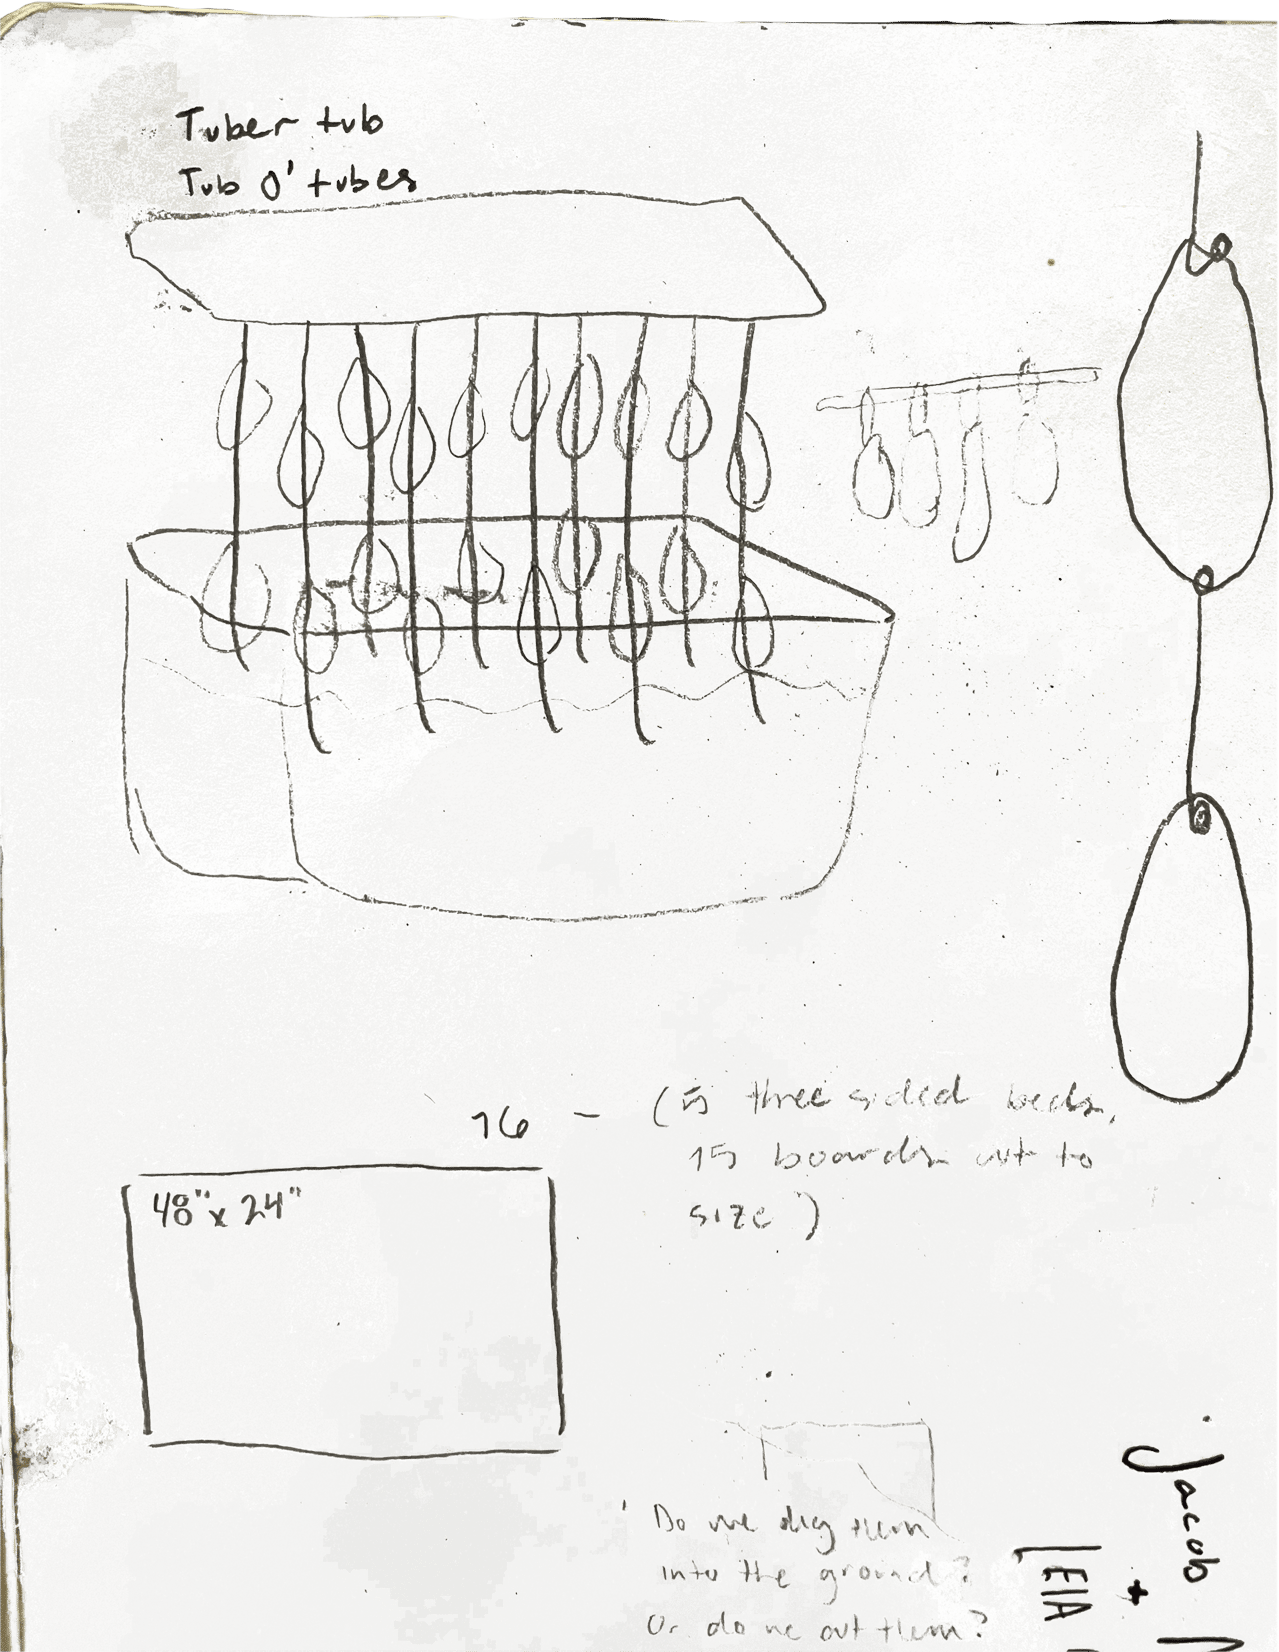 Tuber tub
Tub O' tubes
16 - (5 three sided beds,
15 boards cut to
size)
48" x 24"
Do we dig them
into the ground?
Or do we cut them?
Jacob
+
LEIA